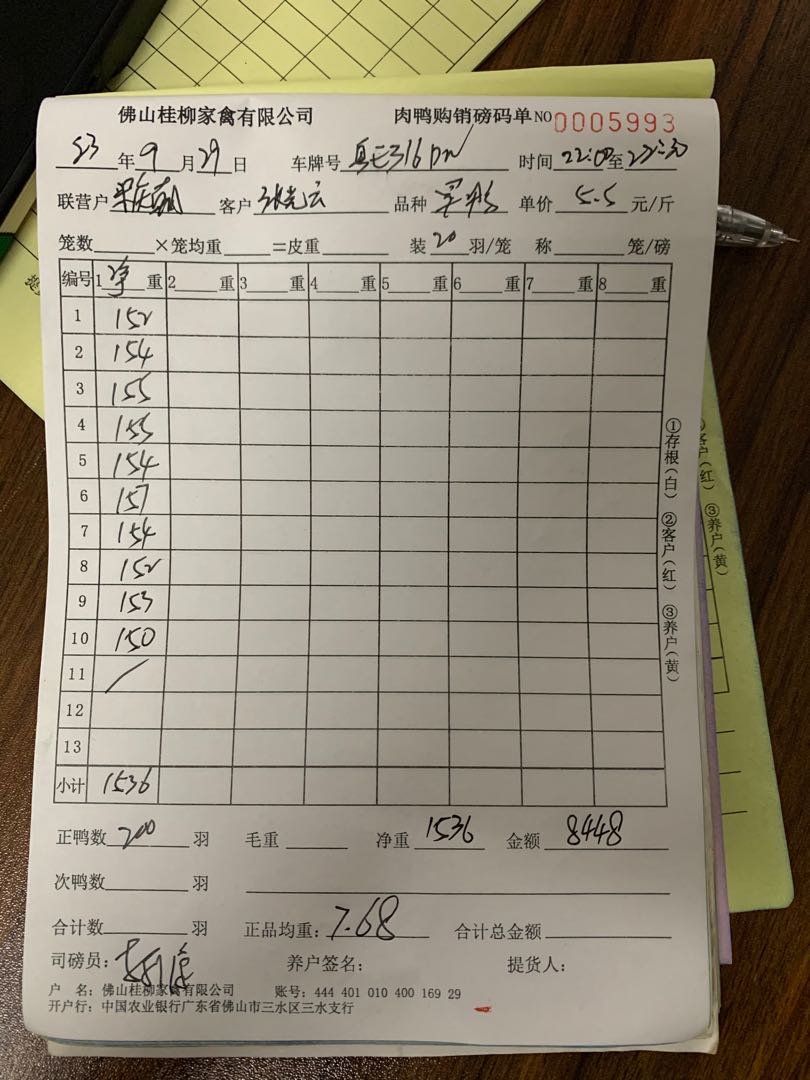 佛山桂柳家禽有限公司 肉鸭购销磅码单 NO 0005993
23 年 9 月 29 日 车牌号 粤E316DN 时间 22:00 至 22:30
联营户 客户 品种 单价 5.5 元/斤
笼数 ×笼均重 =皮重 装 20 羽/笼 称 笼/磅
编号 1 净 重 2 重 3 重 4 重 5 重 6 重 7 重 8 重
1 152
2 154
3 155
4 155
5 154
6 157
7 154
8 152
9 153
10 150
11 /
12
13
小计 1536
①存根(白) ②客户(红) ③养户(黄)
客户(红) ③养户(黄)
正鸭数 200 羽 毛重 净重 1536 金额 8448
次鸭数 羽
合计数 羽 正品均重: 7.68 合计总金额
司磅员: 养户签名: 提货人:
户 名: 佛山桂柳家禽有限公司 账号: 444 401 010 400 169 29
开户行: 中国农业银行广东省佛山市三水区三水支行